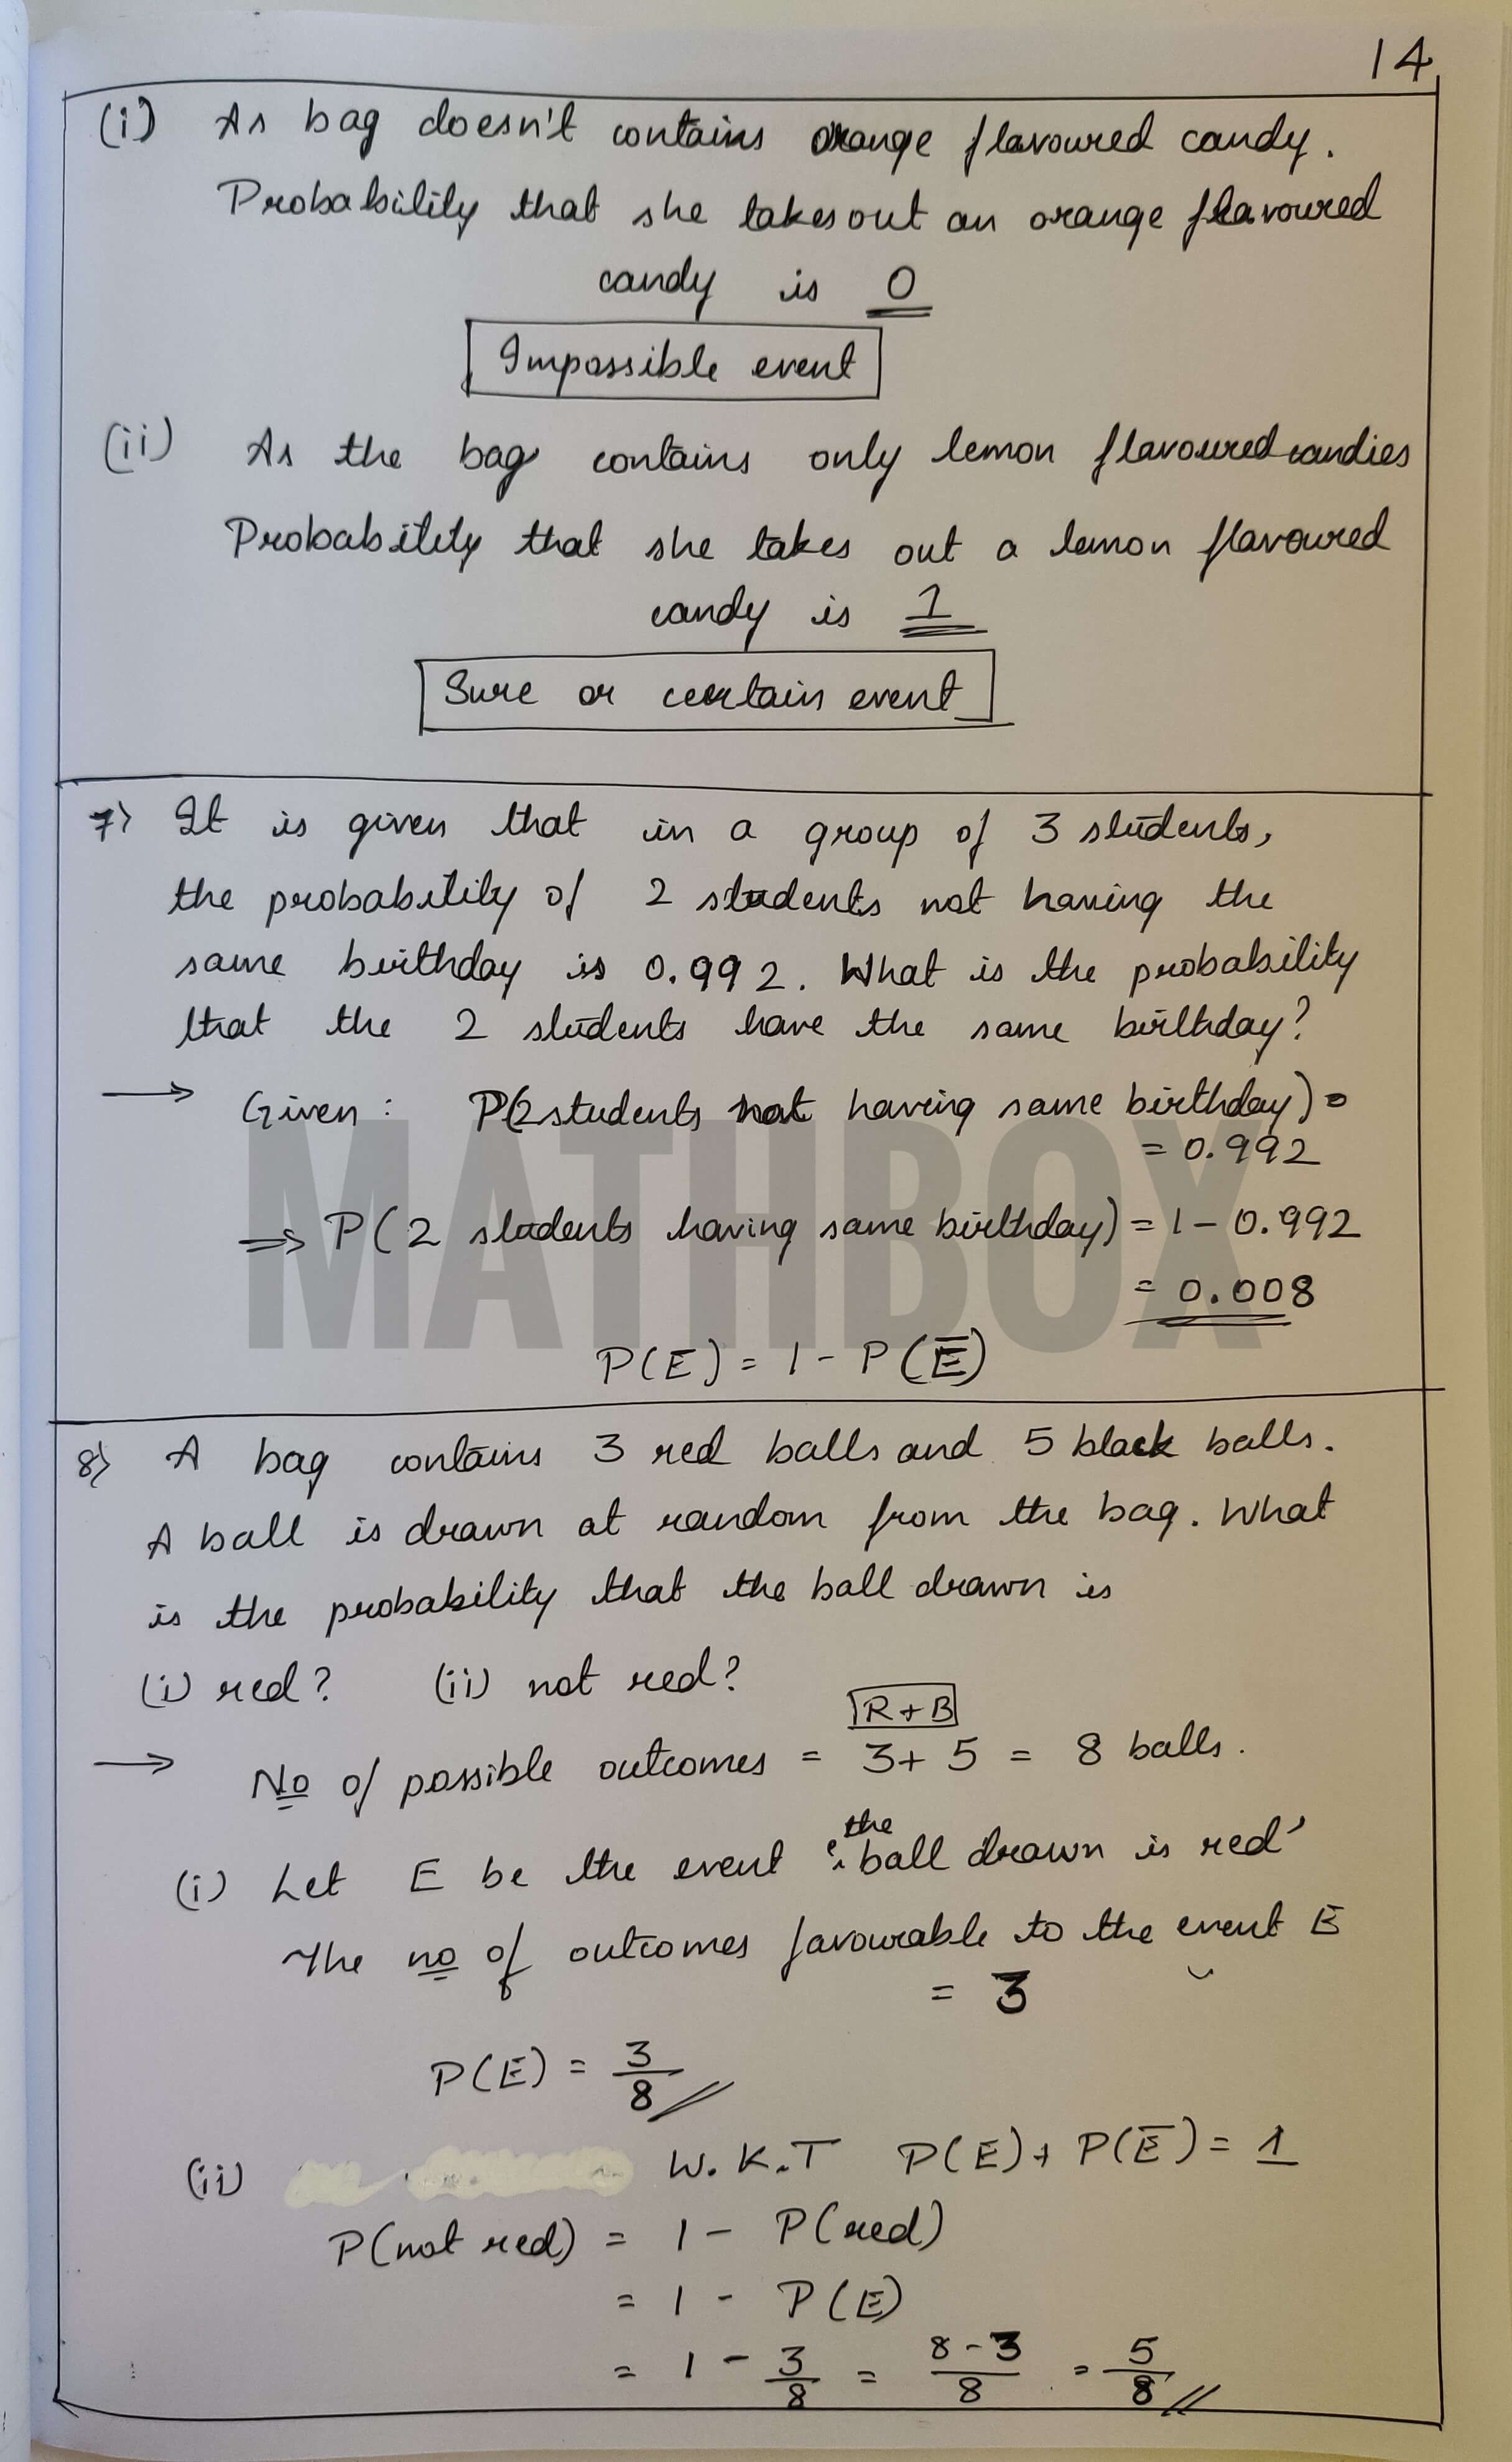 14
(i) As bag doesn't contains orange flavoured candy.
Probability that she takes out an orange flavoured
candy is 0
Impossible event
(ii) As the bag contains only lemon flavoured candies
Probability that she takes out a lemon flavoured
candy is 1
Sure or certain event
7) It is given that in a group of 3 students,
the probability of 2 students not having the
same birthday is 0.992. What is the probability
that the 2 students have the same birthday?
→ Given : P(2 students not having same birthday) =
= 0.992
⇒ P(2 students having same birthday) = 1 - 0.992
= 0.008
MATHBOX
P(E) = 1 - P(E̅)
8) A bag contains 3 red balls and 5 black balls.
A ball is drawn at random from the bag. What
is the probability that the ball drawn is
(i) red? (ii) not red?
R + B
→ No of possible outcomes = 3 + 5 = 8 balls.
(i) Let E be the event 'the ball drawn is red'
The no of outcomes favourable to the event E
= 3
P(E) = 3/8
(ii) W.K.T P(E) + P(E̅) = 1
P(not red) = 1 - P(red)
= 1 - P(E)
= 1 - 3/8 = 8-3/8 = 5/8